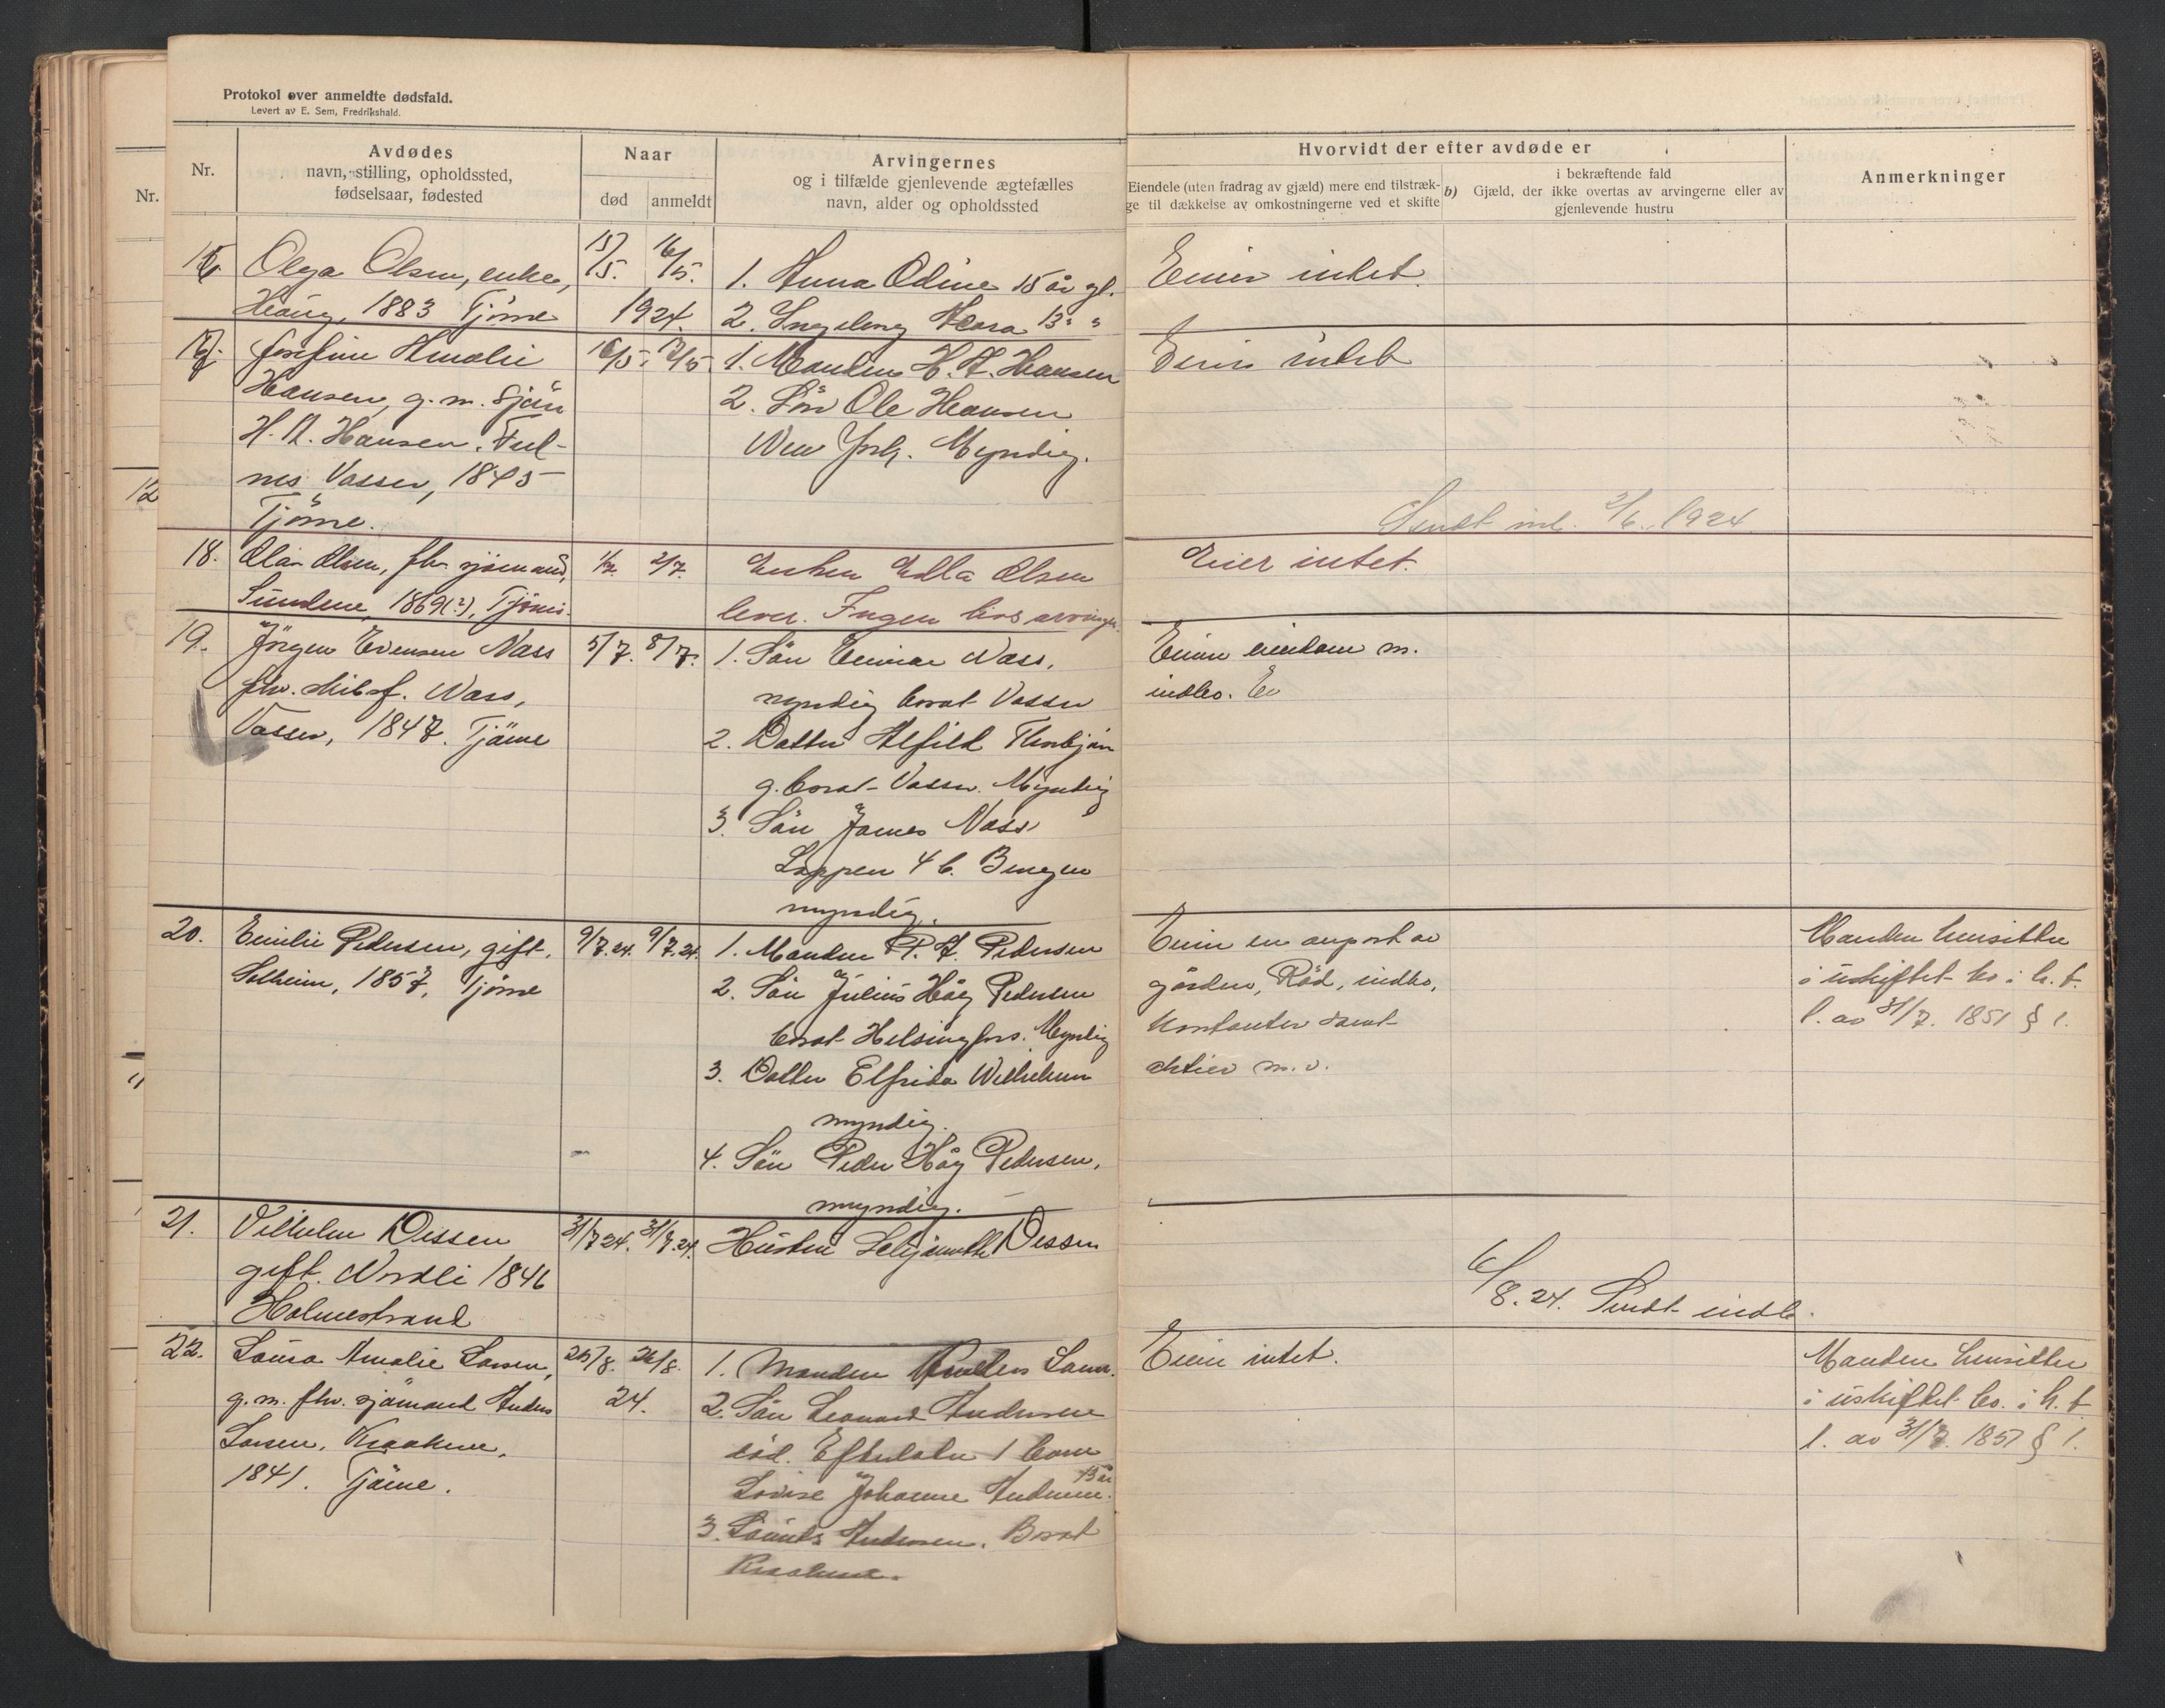 Protokol over anmeldte dødsfald.
Levert av E. Sem, Fredrikshald.
Nr.
Nr.
Avdødes
navn, stilling, opholdssted,
fødselsaar, fødested
Naar
død
anmeldt
Arvingernes
og i tilfælde gjenlevende ægtefælles
navn, alder og opholdssted
Hvorvidt der efter avdøde er
Eiendele (uten fradrag av gjæld) mere end tilstræk-
ge til dækkelse av omkostningerne ved et skifte
b) Gjæld, der
i bekræftende fald
ikke overtas av arvingerne eller av
gjenlevende hustru
Anmerkninger
Olga Olsen, enke,
Haug, 1883 Tjöme
15/5. 16/5.
1924.
1. Anna Odine 15 år gl.
2. Ingeborg 13 " "
Eier intet.
Josefine Amalie
Hansen, g.m. Sjöm
H. A. Hansen,
nes Vasser, 1845
Tjöme.
16/5. 17/5.
1. Manden H. A. Hansen
2. Sön Ole Hansen
New York. Myndig.
Eier intet
Sendt ind. 2/6. 1924
18. Olav Olsen, fhv. sjömand,
Sundene, 1869(?), Tjöme.
1/7. 2/7.
Enken Edla Olsen
lever. Ingen livsarvinger.
Eier intet.
19. Jörgen Evensen Nass
fhv. skibsf. Nass,
Vasser, 1847. Tjöme
5/7. 8/7.
1. Sön Einar Nass,
myndig bosat Vasser
2. Datter Alfild Thorbjörn
g. bosat Vasser. Myndig
3. Sön James Nass
4 b. Bergen
myndig.
Eier eiendom m.
indbo.
20. Emilie Pedersen, gift.
Solheim, 1857, Tjöme
9/7.24. 9/7.24
1. Manden P. A. Pedersen
2. Sön Julius Höeg Pedersen
bosat Helsingfors. Myndig
3. Datter Elfrida Wilhelmsen
myndig.
4. Sön Peder Höeg Pedersen,
myndig.
Eier en anpart av
gården, Röd, indbo,
kontanter samt
aktier m.v.
Manden hensitter
i uskiftet bo i h. t.
l. av 31/7. 1851 § 1.
21. Vilhelm Dessen
gift. Nordli 1846
Holmestrand
31/7 24. 31/7.24.
Hustru Dessen
6/8.24. Sendt indb.
22. Laura Amalie Larsen,
g.m. fhv. sjömand Anders
Larsen, Kraakere,
1841. Tjöme.
25/8. 26/8.
24.
1. Manden Anders Larsen.
2. Sön Leonard Andersen
död. Efterlater 1 barn
Lovise Johanne Andersen. 13 år
3. Laurits Andersen. Bosat
Kraakere.
Eier intet.
Manden hensitter
i uskiftet bo. i h. t.
l. av 31/7. 1851 § 1.
12